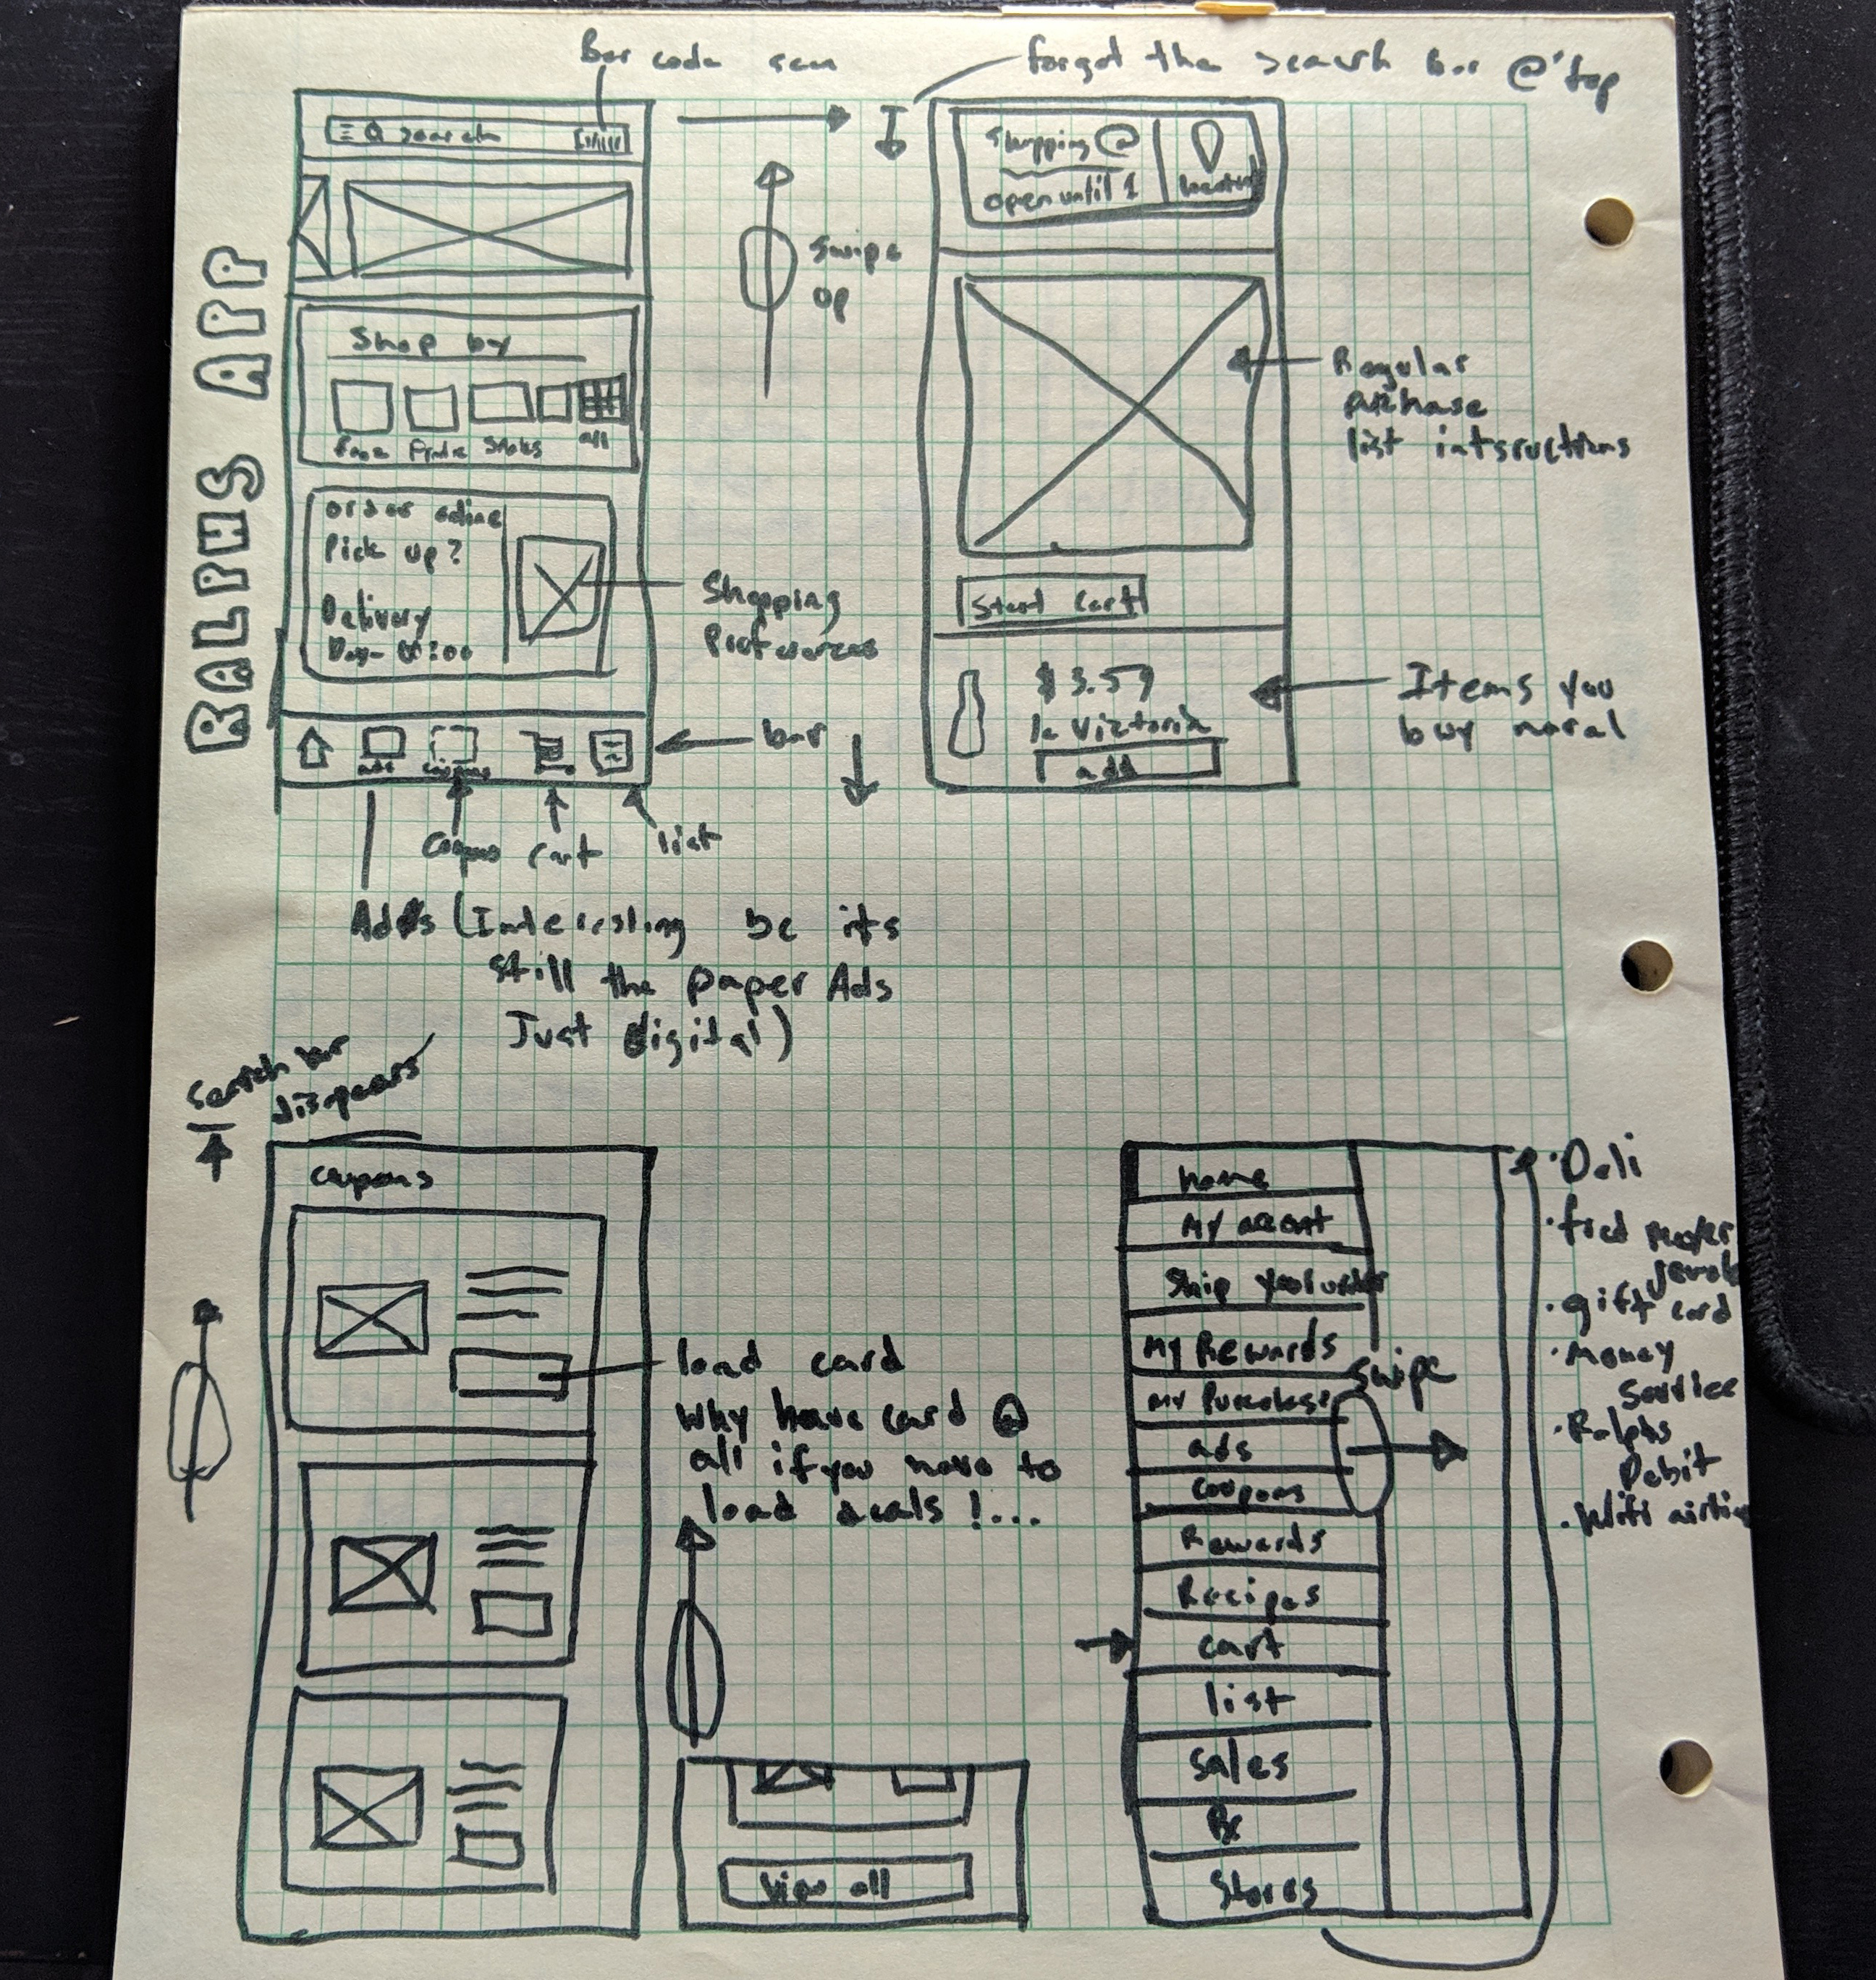 RALPHS APP
Bar code scan
forgot the search bar @ top
search
Shopping @
open until 1
location
swipe
up
Shop by
all
order online
Pick up?
Delivery
Shopping
Preferences
Regular
purchase
list intsructions
Start Cart
$3.59
la Victoria
add
Items you
buy noral
ads
coupons
bar
coupons
cart
list
Adds (Interesting bc its
still the paper Ads
Just digital)
search bar
disapears
coupons
load card
Why have card @
all if you have to
load deals !...
View all
home
My account
Ship
My Rewards
My Purchases
ads
coupons
Rewards
Recipes
cart
list
Sales
Rx
Stores
swipe
· Deli
· fred meyer
· gift card
· Money
Service
· Ralphs
Debit